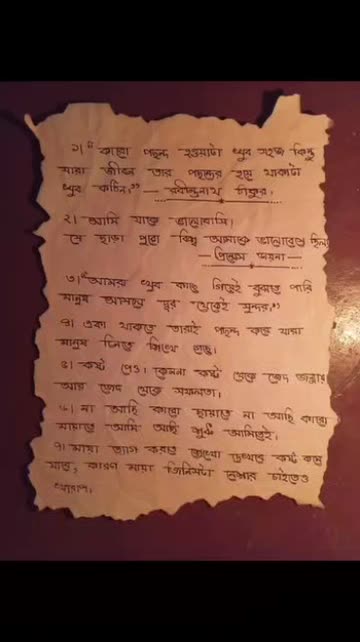 ১। " কারো পছন্দ হওয়াটা খুব সহজ কিন্তু
সারা জীবন তার পছন্দের হয়ে থাকাটা
খুব কঠিন," — রবীন্দ্রনাথ ঠাকুর।
২। আমি যাকে ভালোবাসি।
সে ছাড়া পুরো বিশ্ব আমাকে ভালোবেসে ছিল
৩। "আমরা খুব কাছে গিয়েই বুঝতে পারি
মানুষ আসলে দূর থেকেই সুন্দর,"
৪। একা থাকতে তারাই পছন্দ করে যারা
মানুষ চিনতে শিখে গেছে।
৫। কষ্ট পেও। কেননা কষ্ট থেকে জেদ জন্মায়
আর জেদ থেকে সফলতা।
৬। না আছি কারো ছায়াতে না আছি কারো
মায়াতে আমি আছি শুধু আমিতেই।
৭। মায়া ত্যাগ করতে শেখো দেখবে কষ্ট কমে
যাবে, কারণ মায়া জিনিসটা নেশার চাইতেও
খারাপ।